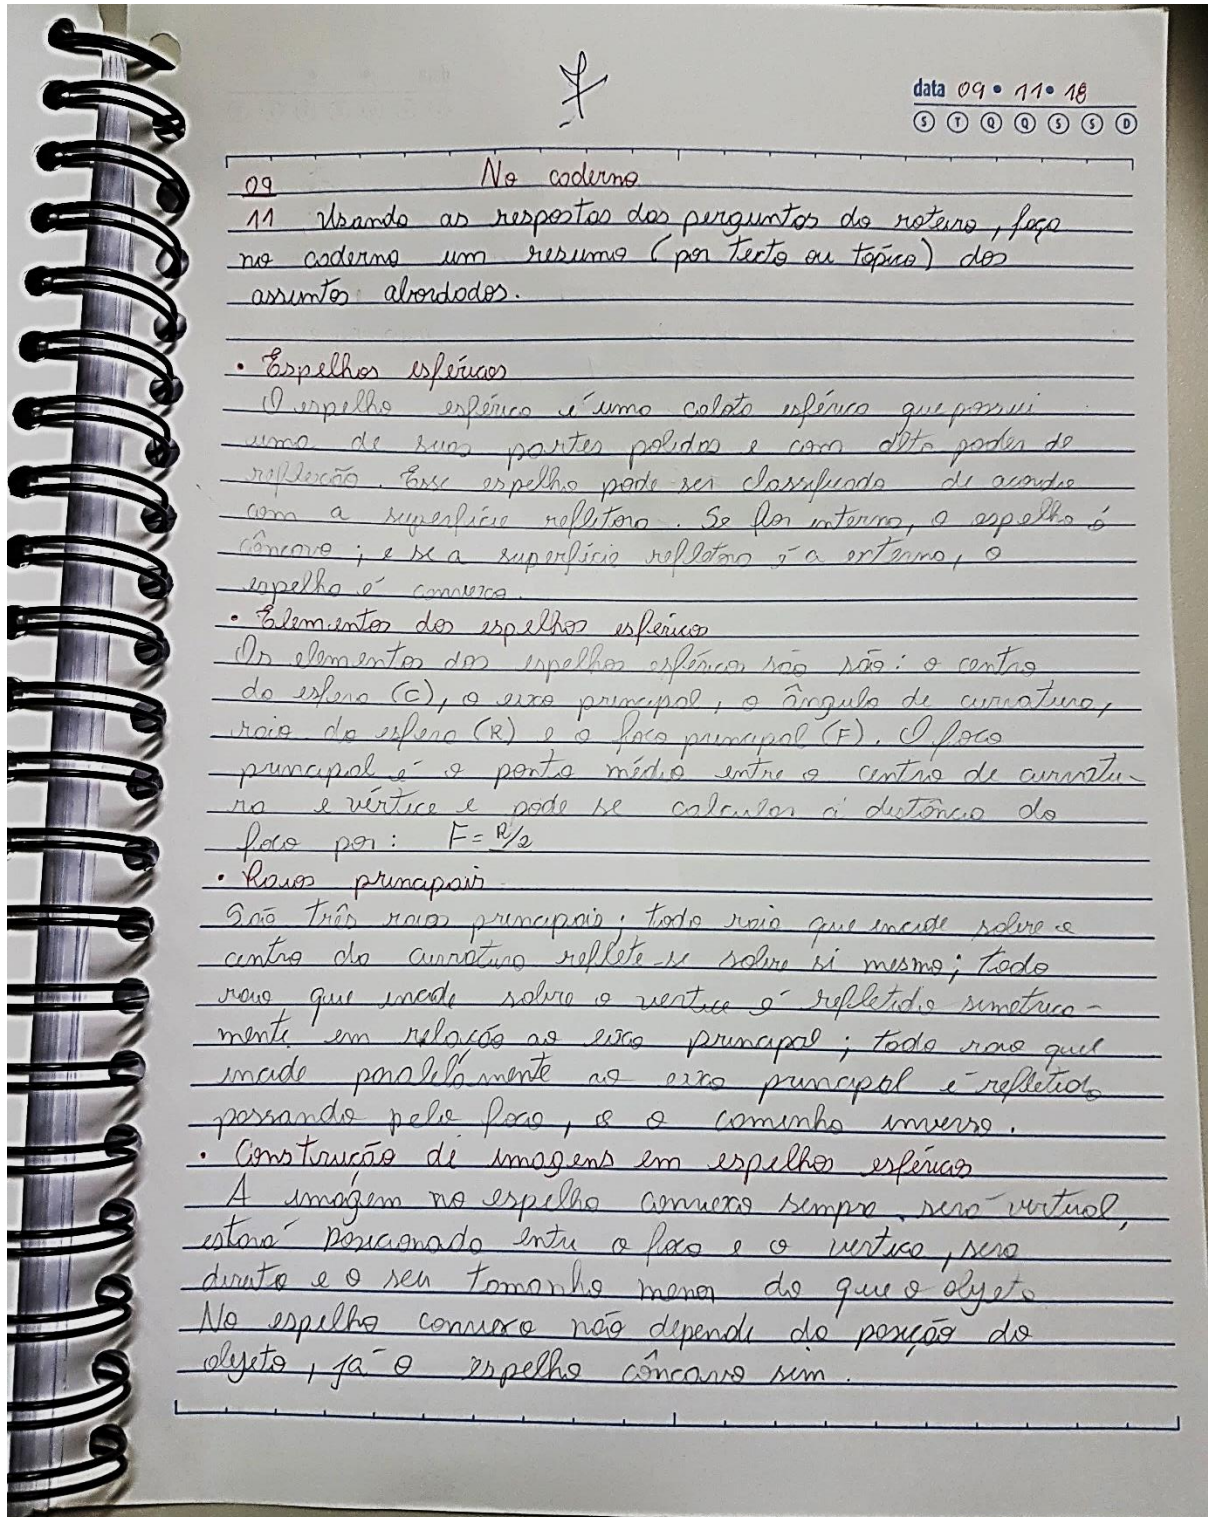 data 09 • 11 • 18
S T Q Q S S D
09 No caderno
11 Usando as respostas das perguntas do roteiro, faça
no caderno um resumo (por texto ou tópico) dos
assuntos abordados.
• Espelhos esféricos
O espelho esférico é uma calota esférica que possui
uma de suas partes polidas e com alto poder de
reflexão. Esse espelho pode ser classificado de acordo
com a superfície refletora. Se for interna, o espelho é
côncavo; e se a superfície refletora é a externa, o
espelho é convexo.
• Elementos dos espelhos esféricos
Os elementos dos espelhos esféricos são são: o centro
da esfera (C), o eixo principal, o ângulo de curvatura,
raio da esfera (R) e o foco principal (F). O foco
principal é o ponto médio entre o centro de curvatu-
ra e vértice e pode se calcular a distância do
foco por: F = R/2
• Raios principais
São três raios principais; todo raio que incide sobre o
centro da curvatura reflete-se sobre si mesmo; todo
raio que incide sobre o vertice é refletido simetrica-
mente em relação ao eixo principal; todo raio que
incide paralelamente ao eixo principal é refletido
passando pelo foco, e o caminho inverso.
• Construção de imagens em espelhos esféricos
A imagem no espelho convexo sempre será virtual,
estará posicionada entre o foco e o vertice, sera
direita e o seu tamanho menor do que o objeto
No espelho convexo não depende da posição do
objeto, já o espelho côncavo sim.